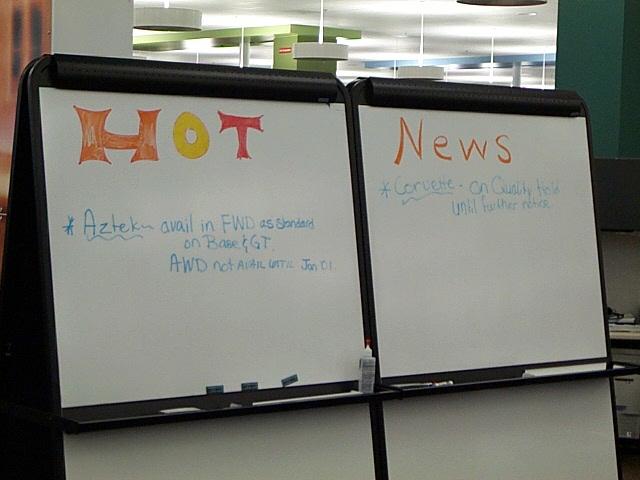 HOT
* Aztek - avail in FWD as standard
on Base & GT.
AWD not AVAIL UNTIL Jan '01.
News
* Corvette - on Quality Hold
until further notice